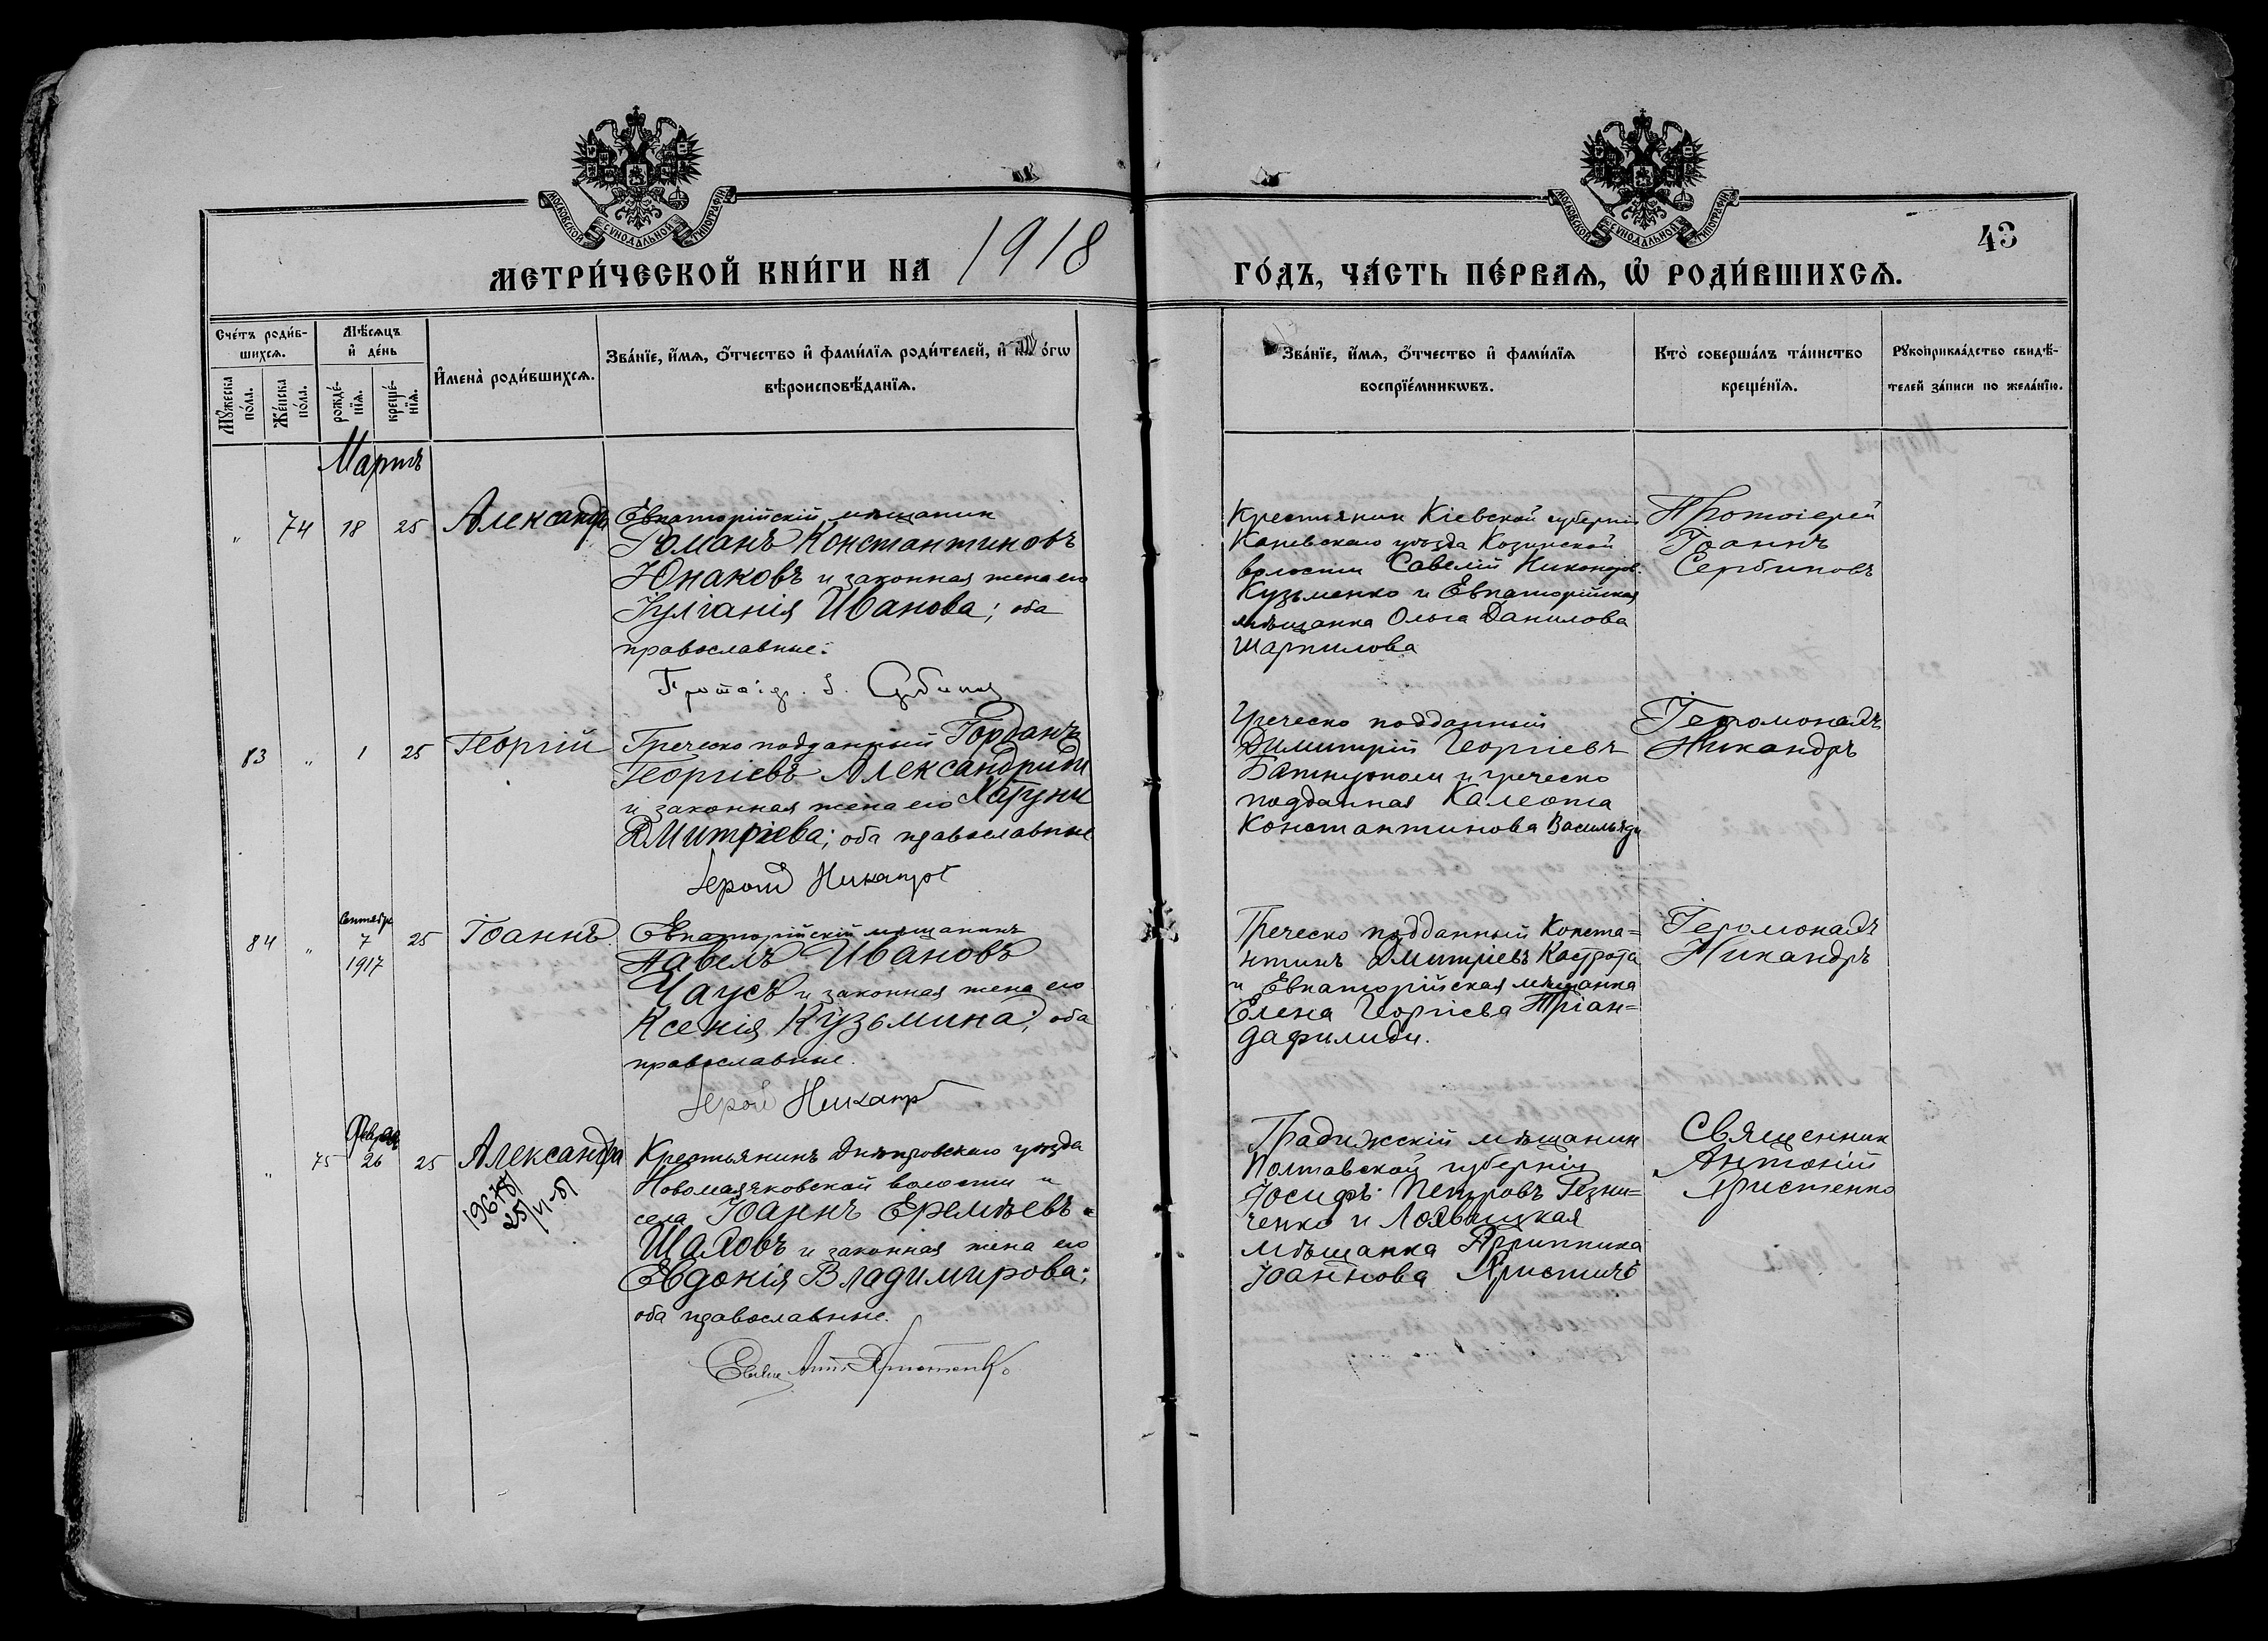 МОСКОВСКОЙ СѴНОДАЛЬНОЙ ТИПОГРАФІИ
МОСКОВСКОЙ СѴНОДАЛЬНОЙ ТИПОГРАФІИ
43
МЕТРИ́ЧЕСКОЙ КНИ́ГИ НА 1918 ГО́ДЪ, ЧА́СТЬ ПЕ́РВАѦ, Ѡ҆ РОДИ́ВШИХСѦ.
Сче́тъ роди́в-
шихсѧ.
Мꙋжеска
по́ла.
Же́нска
по́ла.
Мѣ́сѧцъ
и҆ де́нь
рожде́-
нїѧ.
креще́-
нїѧ.
И҆мена̀ роди́вшихсѧ.
Зва́нїе, и҆́мѧ, ѻ҆́тчество и҆ фами́лїѧ роди́телей, и҆ ко́гѡ
вѣроисповѣ́данїѧ.
Зва́нїе, и҆́мѧ, ѻ҆́тчество и҆ фами́лїѧ
воспрїе́мникѡвъ.
Кто̀ соверша́лъ та́инство
креще́нїѧ.
Рꙋкоприкла́дство свидѣ́-
телей за́писи по жела́нїю.
Мартъ
" 74 18 25 Александра
Евпаторійскій мѣщанин
Романъ Константиновъ
Юнаковъ и законная жена его
Іуліанія Иванова; оба
православные.
Протоіер. І. Сербинов
Крестьянин Кіевской губерніи
Каневскаго уѣзда Козинской
волости Савелій Никоноров.
Кузьменко и Евпаторійская
мѣщанка Ольга Данилова
Шарпилова
Протоіерей
Іоаннъ
Сербиновъ
83 " 1 25 Георгій
Греческо подданный Іорданъ
Георгіевъ Александриди
и законная жена его Хатуни
Дмитріева; оба православные
Іером Никандръ
Греческо подданный
Димитрій Георгіевъ
и греческо
подданная Калеопа
Константинова Васильяди
Іеромонахъ
Никандръ
84 " Сентябр
7
1917
25 Іоаннъ
Евпаторійскій мѣщанинъ
Павелъ Ивановъ
Чаусъ и законная жена его
Ксенія Кузьмина; оба
православные.
Іером Никандр
Греческо подданный Конста=
нтинъ Дмитріевъ Кострота
и Евпаторійская мѣщанка
Елена Георгіева Тріан=
дафилиди.
Іеромонахъ
Никандръ
" 75 Феврал
26
25 Александра
25/VI-51
Крестьянинъ Днѣпровскаго уѣзда
Новомаячковской волости и
села Іоаннъ Еремѣевъ
Шаховъ и законная жена его
Евдокія Владимирова;
оба православные.
Свящ. Ант. Христенко
Градижскій мѣщанин
Полтавской губерніи
Іосифъ Петровъ Резни=
ченко и Лохвицкая
мѣщанка Агриппина
Іоаннова Христичъ
Священник
Антоній
Христенко